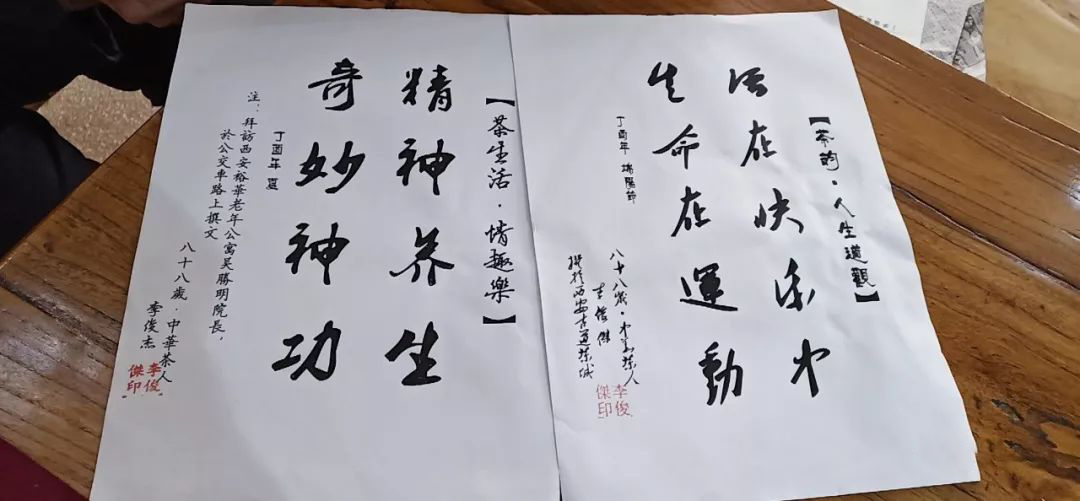 【茶韵·人生道觀】
活在快乐中
生命在運動
丁酉年 端陽節
八十八歲·中華茶人
李俊傑
撰於西安古道茶城
李俊
傑印
【茶生活·情趣樂】
精神养生
奇妙神功
丁酉年 夏
注：拜訪西安裕華老年公寓吴勝明院長，
於公交車路上撰文
八十八歲·中華茶人
李俊杰
李俊
傑印